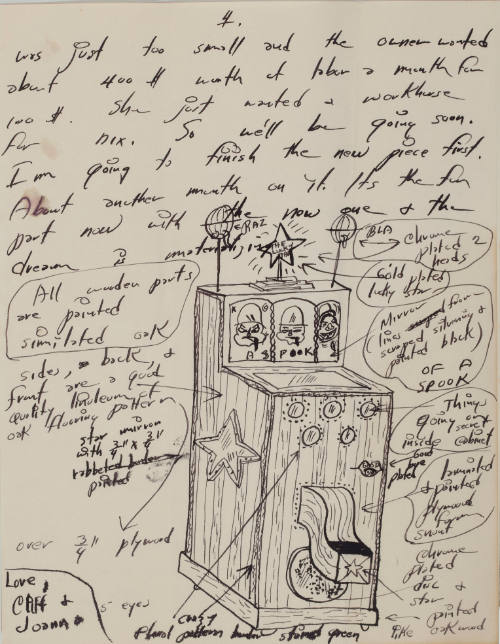 4.
was just too small and the owner wanted
about 400 $ worth of labor a month for
100 $. She just wanted a workhorse
for nix. So we'll be going soon.
I'm going to finish the new piece first.
About another month on it. It's the fun
part now with the now one & the
dream is materializing
BLA
chrome
plated
heads
2
Gold plated
lucky star
All wooden parts
are painted
similated oak
Mirrow
lines scraped
scraped silvering &
painted black
OF A
SPOOK
A S POOK
side, back, &
front are a good
quality linoleum of
oak flooring pattern
star mirrow
with 3/4" x 3/4"
rabbeted border
painted
Things
going on
inside cabinet
Gold
plated
laminated
& painted
plywood
form
snout
over 3/4" plywood
chrome
plated
disc
star &
painted
like oakwood
Love,
Cliff &
Joanna
5 eyes
crazy
floral pattern border stained green